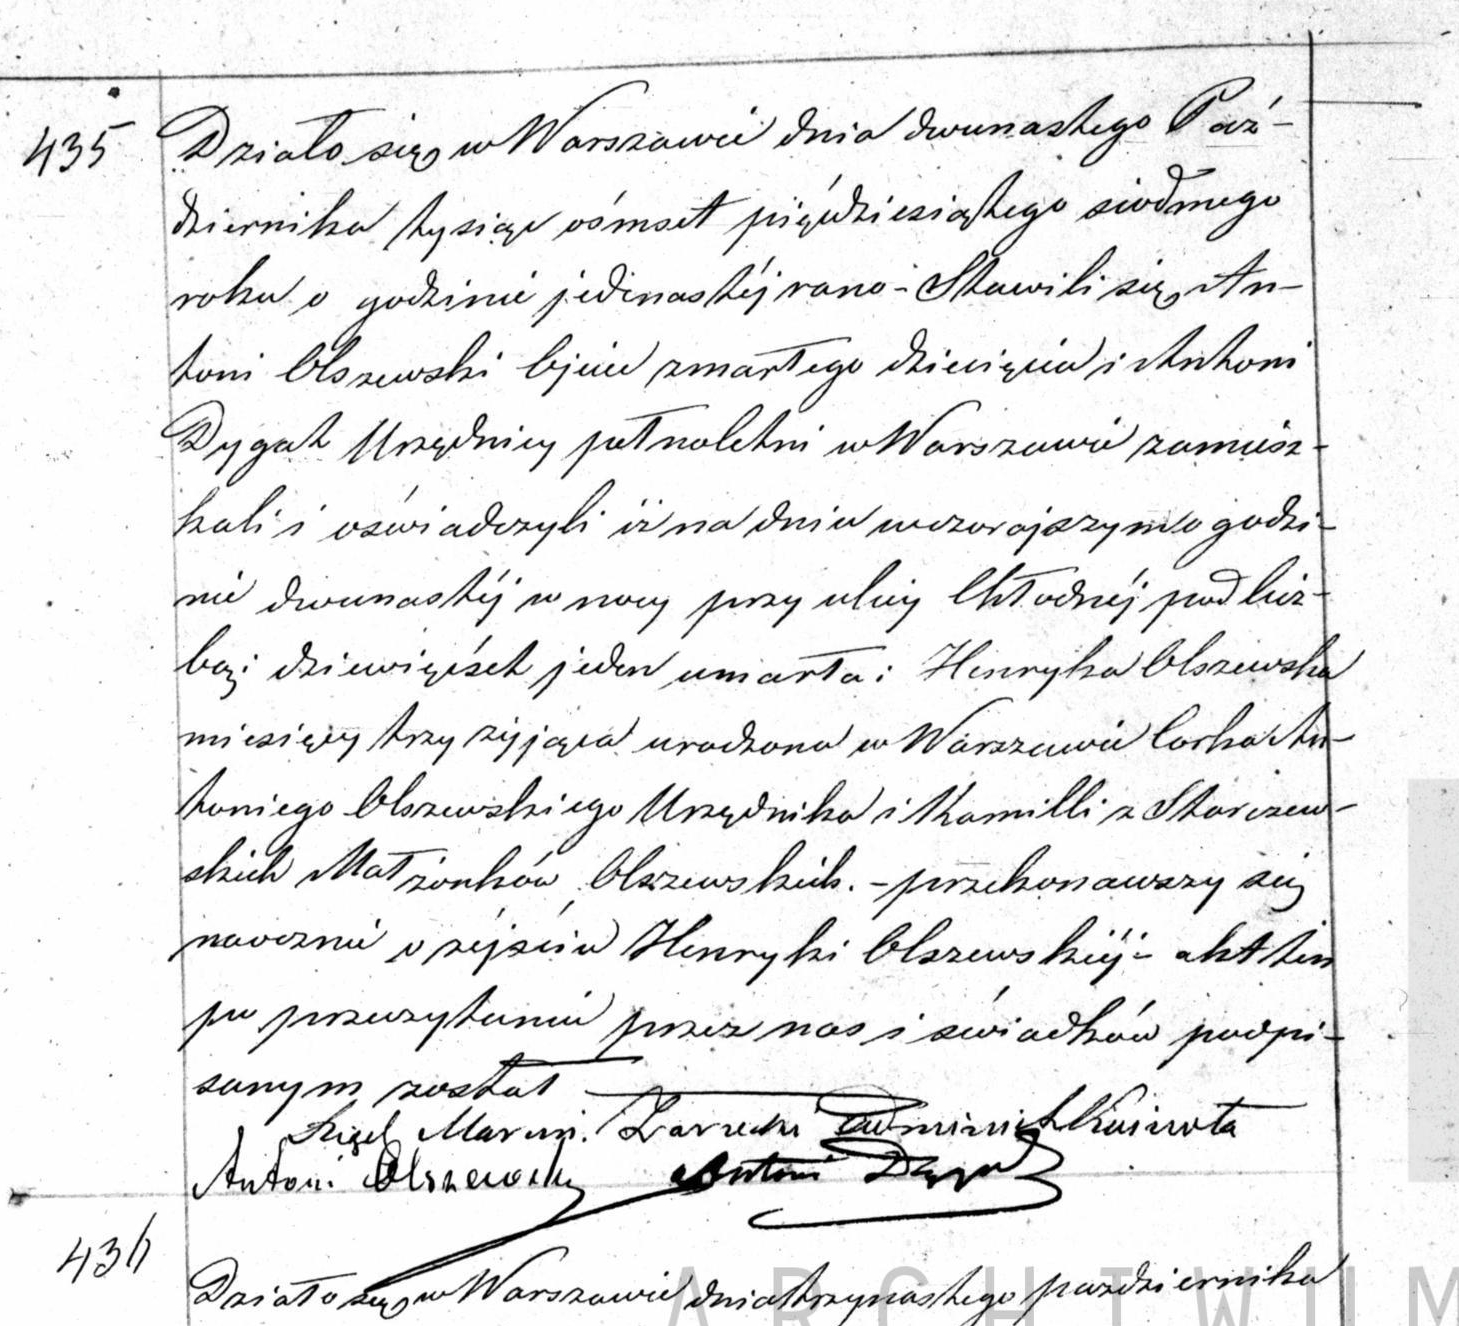 435
Działo się w Warszawie dnia dwunastego Paź-
dziernika tysiąc ośmset pięćdziesiątego siodmego
roku o godzinie jedenastéj rano - Stawili się An-
toni Olszewski Ojciec zmarłego dziecięcia i Antoni
Dygat Urzędnicy pełnoletni w Warszawie zamiesz-
kali i oświadczyli iż na dniu wczorajszym o godzi-
nie dwunastéj w nocy przy ulicy Chłodnéj pod licz-
bą: dziewięćset jeden umarła: Henryka Olszewska
miesięcy trzy żyjąca urodzona w Warszawie Corka An-
toniego Olszewskiego Urzędnika i Kamilli z Starczew-
skich Małżonków Olszewskich. - przekonawszy się
naocznie o zéjściu Henryki Olszewskiéj - akt ten
po przeczytaniu przez nas i świadków podpi-
sanym został
Antoni Olszewski Antoni Dygat
436
Działo się w Warszawie dnia trzynastego pazdziernika
ARCHIWUM